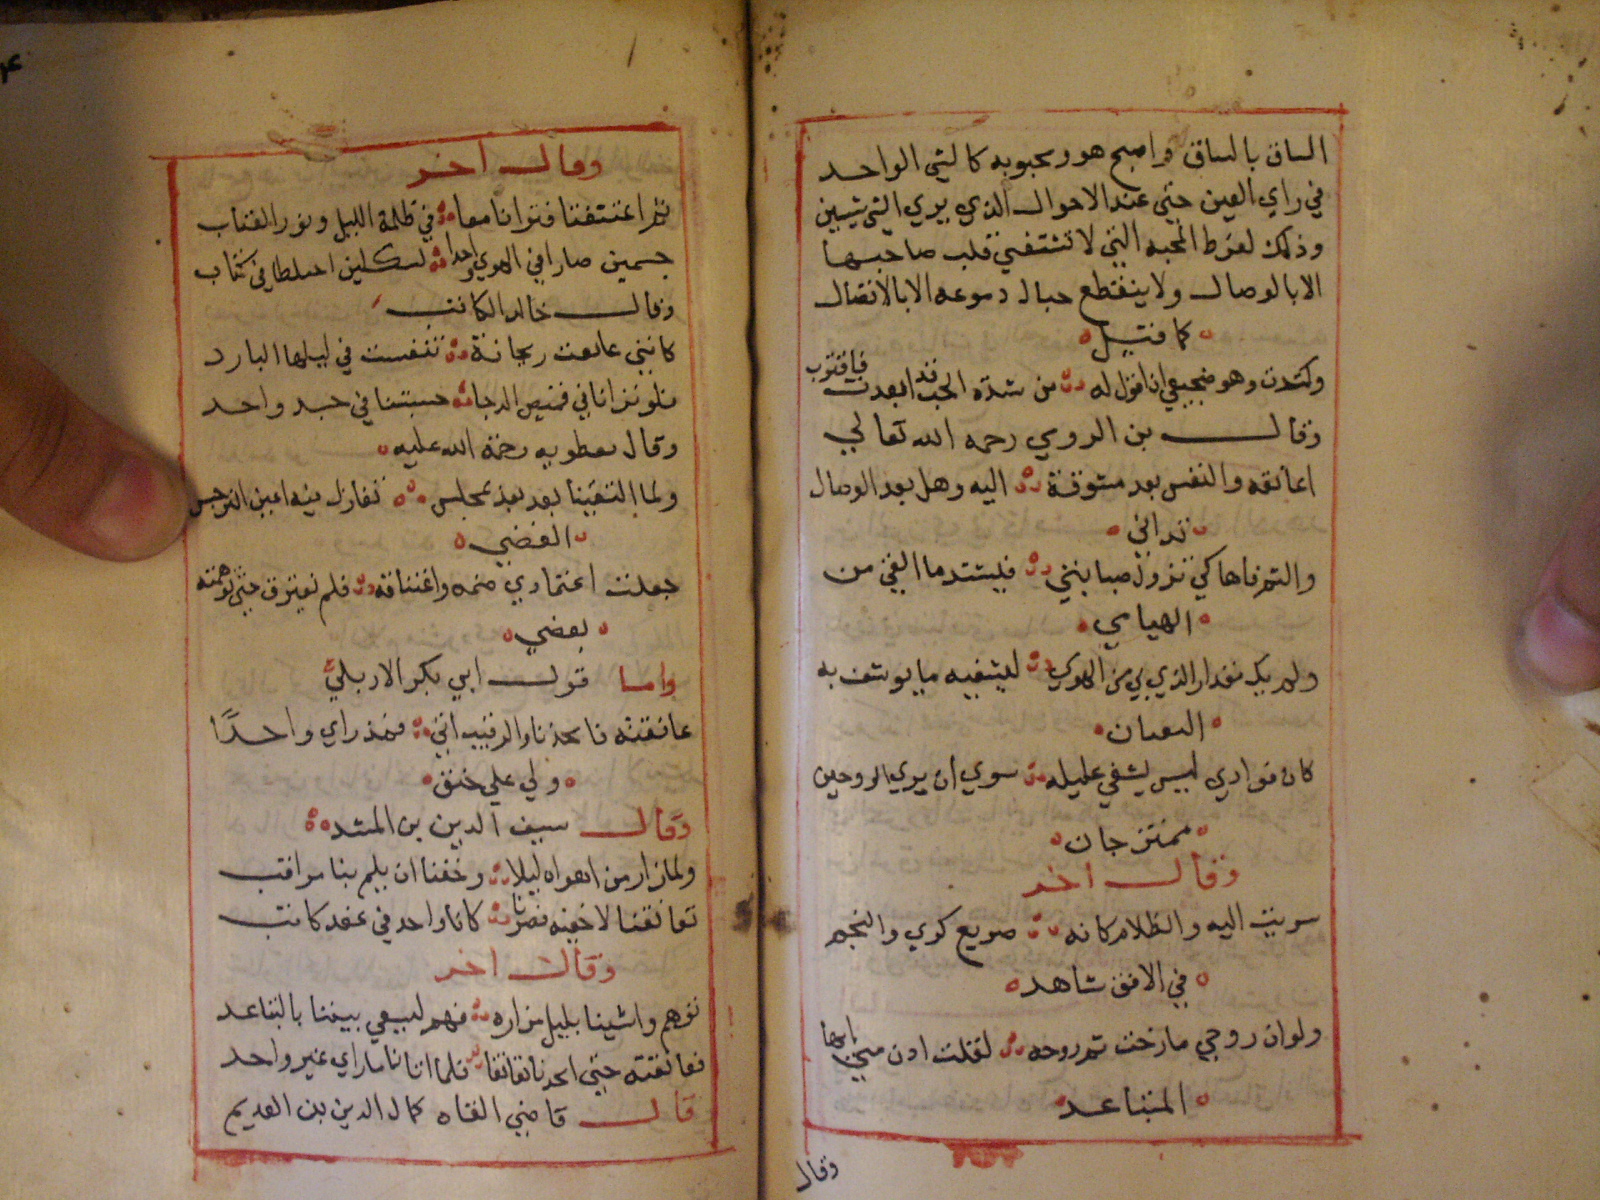 الساق بالساق واصبح هو ومحبوبه كالشي الواحد
في راي العين حتي عند الاحوال الذي يري الشي شيين
وذلك لفرط المحبه التي لا تشتفي قلب صاحبها
الا بالوصال ولا ينقطع حبال دموعه الا بالاتصال
كما قيل
وكتدت وهو ضجيعي ان اقول له من شدة الحب قد ابعدت فاقترب
وقال بن الرومي رحمه الله تعالي
اعانقه والنفس بعد مشوقة اليه وهل بعد الوصال
تداني
والثم فاها كي تزول صبابتي فيشتد ما القي من
الهيامي
ولم يك مقدار الذي بي من الهوي ليشفيه ما يرشف به
الشفتان
كان فوادي ليس يشفي غليله سوي ان يري الروحين
ممتزجان
وقال اخر
سريت اليه والظلام كانه صريع كري والنجم
في الافق شاهد
ولو ان روحي مازجت ثم روحه لقلت ادن مني ايها
المتباعد
وقال
وقال اخر
ثم اعتنقنا فترانا معا في ظلمة الليل ونور العتاب
جسمين صارا في الهوي واحدا كشكلين اختلطا في كتاب
وقال خالد الكاتب
كانني عانقت ريحانة تنفست في ليلها البارد
فلو ترانا في قميص الدجا حسبتنا في جسد واحد
وقال نفطويه رحمة الله عليه
ولما التقينا بعد بعد بمجلس تغازل فيه اعين النرجس
الغضي
جعلت اعتمادي ضمه واعتناقه فلم نفترق حتي توهمته
بعضي
واما قول ابي بكر الاربلي
عانقته فاتحدنا والرقيب اتي فمذ راي واحدًا
ولي علي حنق
وقال سيف الدين بن المشد
ولما زار من اهواه ليلا وخفنا ان يلم بنا مراقب
تعانقنا لاخفيه فصرنا كانا واحد في عقد كاتب
وقال اخر
توهم واشينا بليل مزاره فهم ليسعي بيننا بالتباعد
فعانقته حتي اتحدنا تعانقا فلما اتانا ما راي غير واحد
قال قاضي القضاه كمال الدين بن العديم